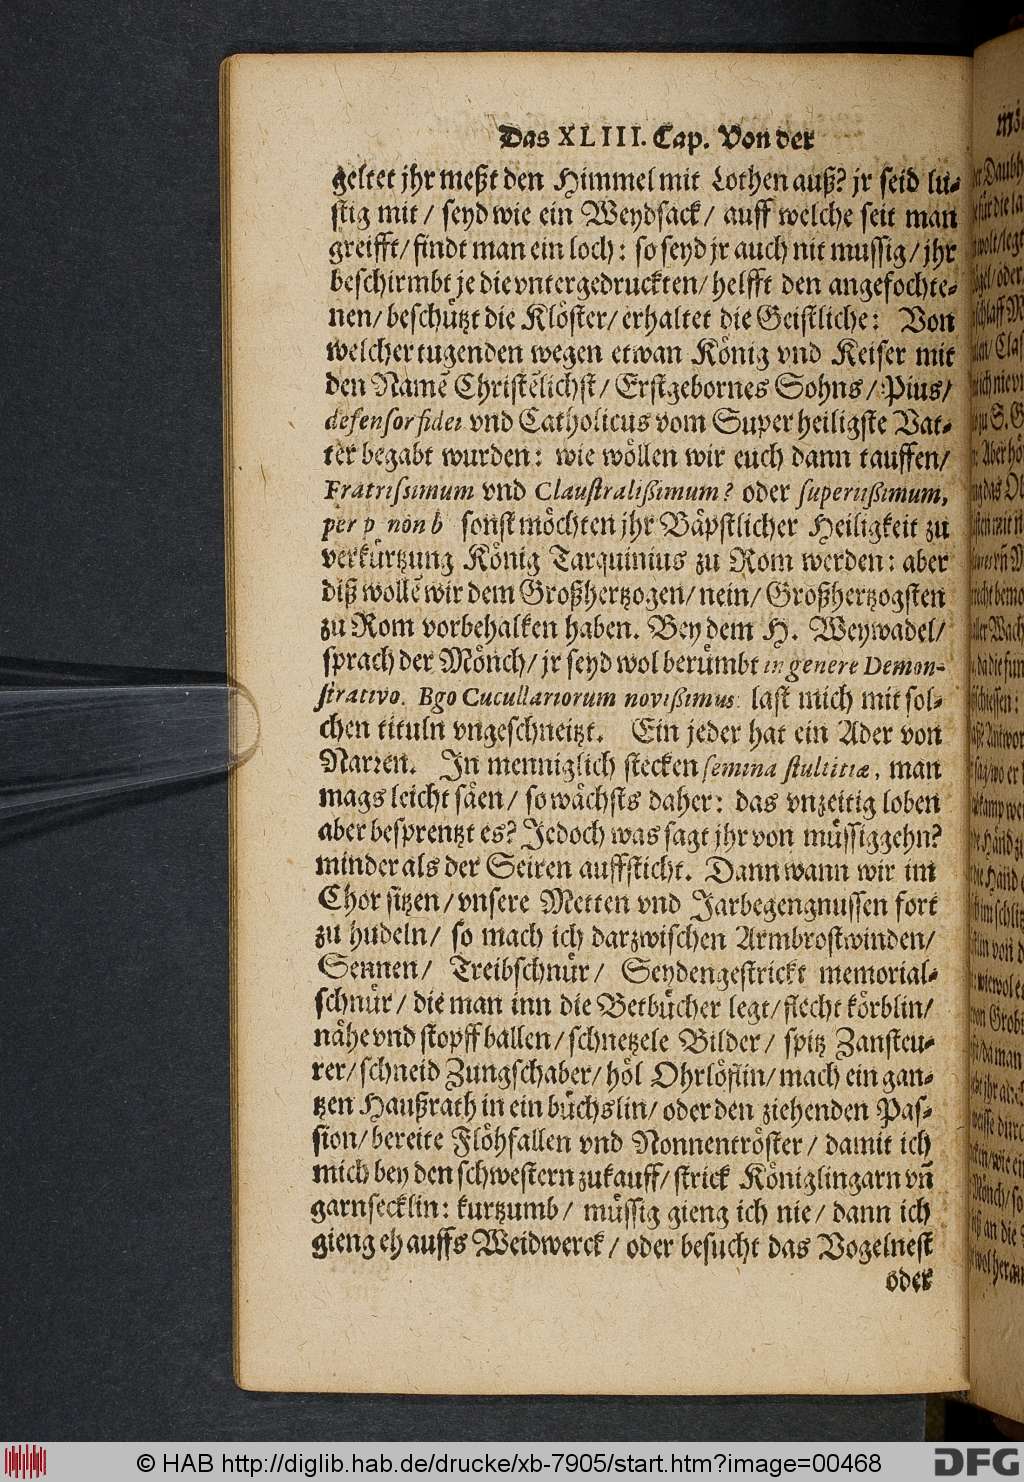 Das XLIII. Cap. Von der
geltet jhr meßt den Himmel mit Lothen auß? jr seid lu-
stig mit / seyd wie ein Weydsack / auff welche seit man
greifft / findt man ein loch : so seyd jr auch nit mussig / jhr
beschirmbt je die vntergedruckten / helfft den angefochte-
nen / beschützt die Klöster / erhaltet die Geistliche : Von
welcher tugenden wegen etwan König vnd Keiser mit
den Namẽ Christẽlichst / Erstgebornes Sohns / Pius /
defensor fidei vnd Catholicus vom Super heiligste Vat-
ter begabt wurden : wie wöllen wir euch dann tauffen /
Fratrissimum vnd Claustralißimum? oder superißimum,
per p non b sonst möchten jhr Bäpstlicher Heiligkeit zu
verkürtzung König Tarquinius zu Rom werden : aber
diß wollẽ wir dem Großhertzogen / nein / Großhertzogsten
zu Rom vorbehalten haben. Bey dem H. Weywadel /
sprach der Mönch / jr seyd wol berümbt in genere Demon-
strativo. Bgo Cucullariorum novißimus: last mich mit sol-
chen tituln vngeschneitzt. Ein jeder hat ein Ader von
Narren. In menniglich stecken semina stultitiæ, man
mags leicht säen / so wächsts daher : das vnzeitig loben
aber besprentzt es? Jedoch was sagt jhr von müssiggehn?
minder als der Seiren auffsticht. Dann wann wir im
Chor sitzen / vnsere Metten vnd Jarbegengnussen fort
zu hudeln / so mach ich darzwischen Armbrostwinden /
Sennen / Treibschnür / Seydengestrickt memorial-
schnür / die man inn die Betbücher legt / flecht körblin /
nähe vnd stopff ballen / schnetzele Bilder / spitz Zansteu-
rer / schneid Zungschaber / höl Ohrlöfflin / mach ein gan-
tzen Haußrath in ein büchslin / oder den ziehenden Pas-
sion / bereite Flöhfallen vnd Nonnentröster / damit ich
mich bey den schwestern zukauff / strick Königlingarn vñ
garnsecklin : kurtzumb / müssig gieng ich nie / dann ich
gieng eh auffs Weidwerck / oder besucht das Vogelnest
oder
© HAB http://diglib.hab.de/drucke/xb-7905/start.htm?image=00468
DFG